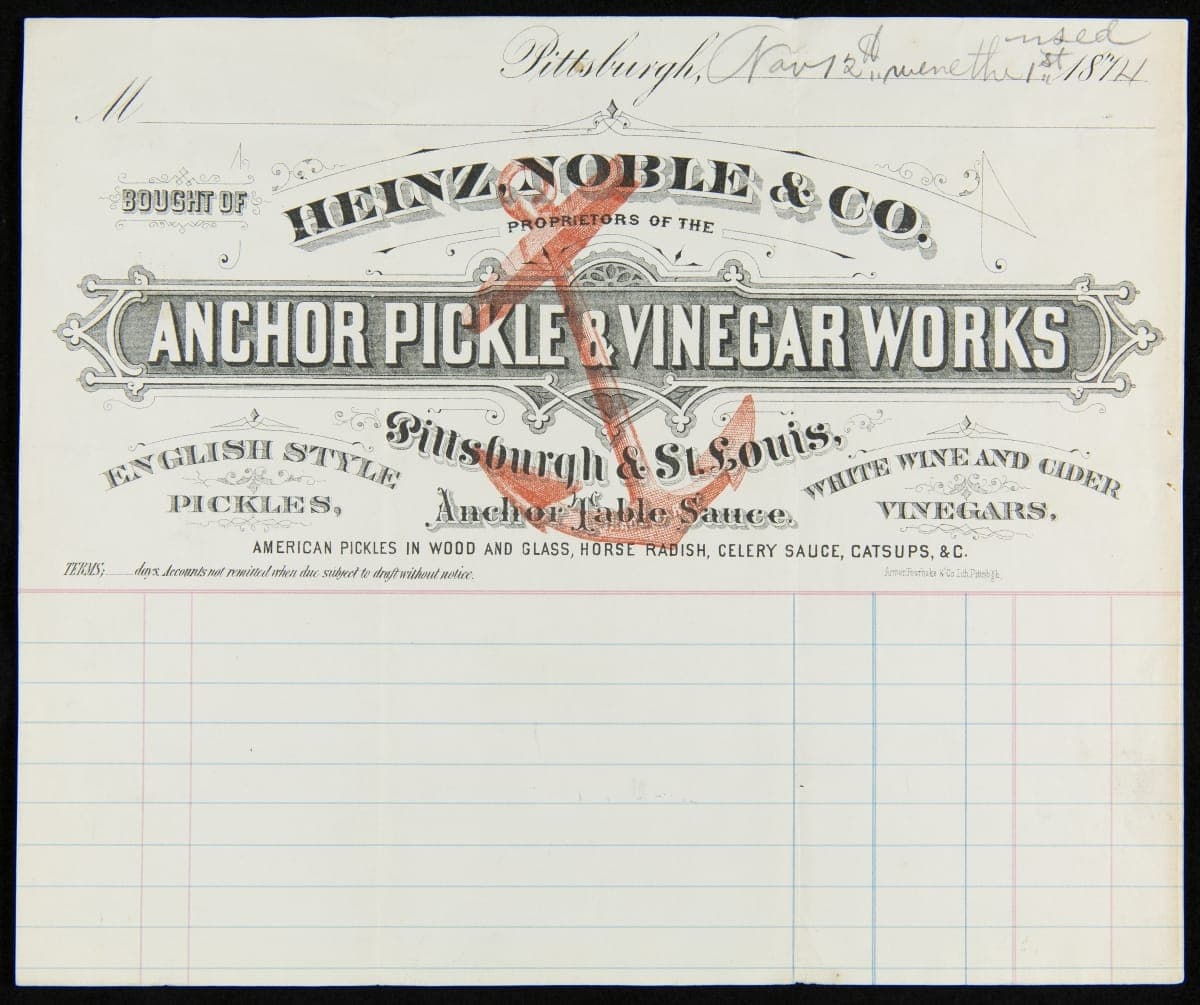 used
Pittsburgh, Nov 12th were the 1st 1874
M
BOUGHT OF
HEINZ, NOBLE & CO.
PROPRIETORS OF THE
ANCHOR PICKLE & VINEGAR WORKS
Pittsburgh & St. Louis,
ENGLISH STYLE
PICKLES,
WHITE WINE AND CIDER
VINEGARS,
Anchor Table Sauce.
AMERICAN PICKLES IN WOOD AND GLASS, HORSE RADISH, CELERY SAUCE, CATSUPS, &C.
TERMS; days. Accounts not remitted when due subject to draft without notice.
& Co. Lith. Pittsbgh.